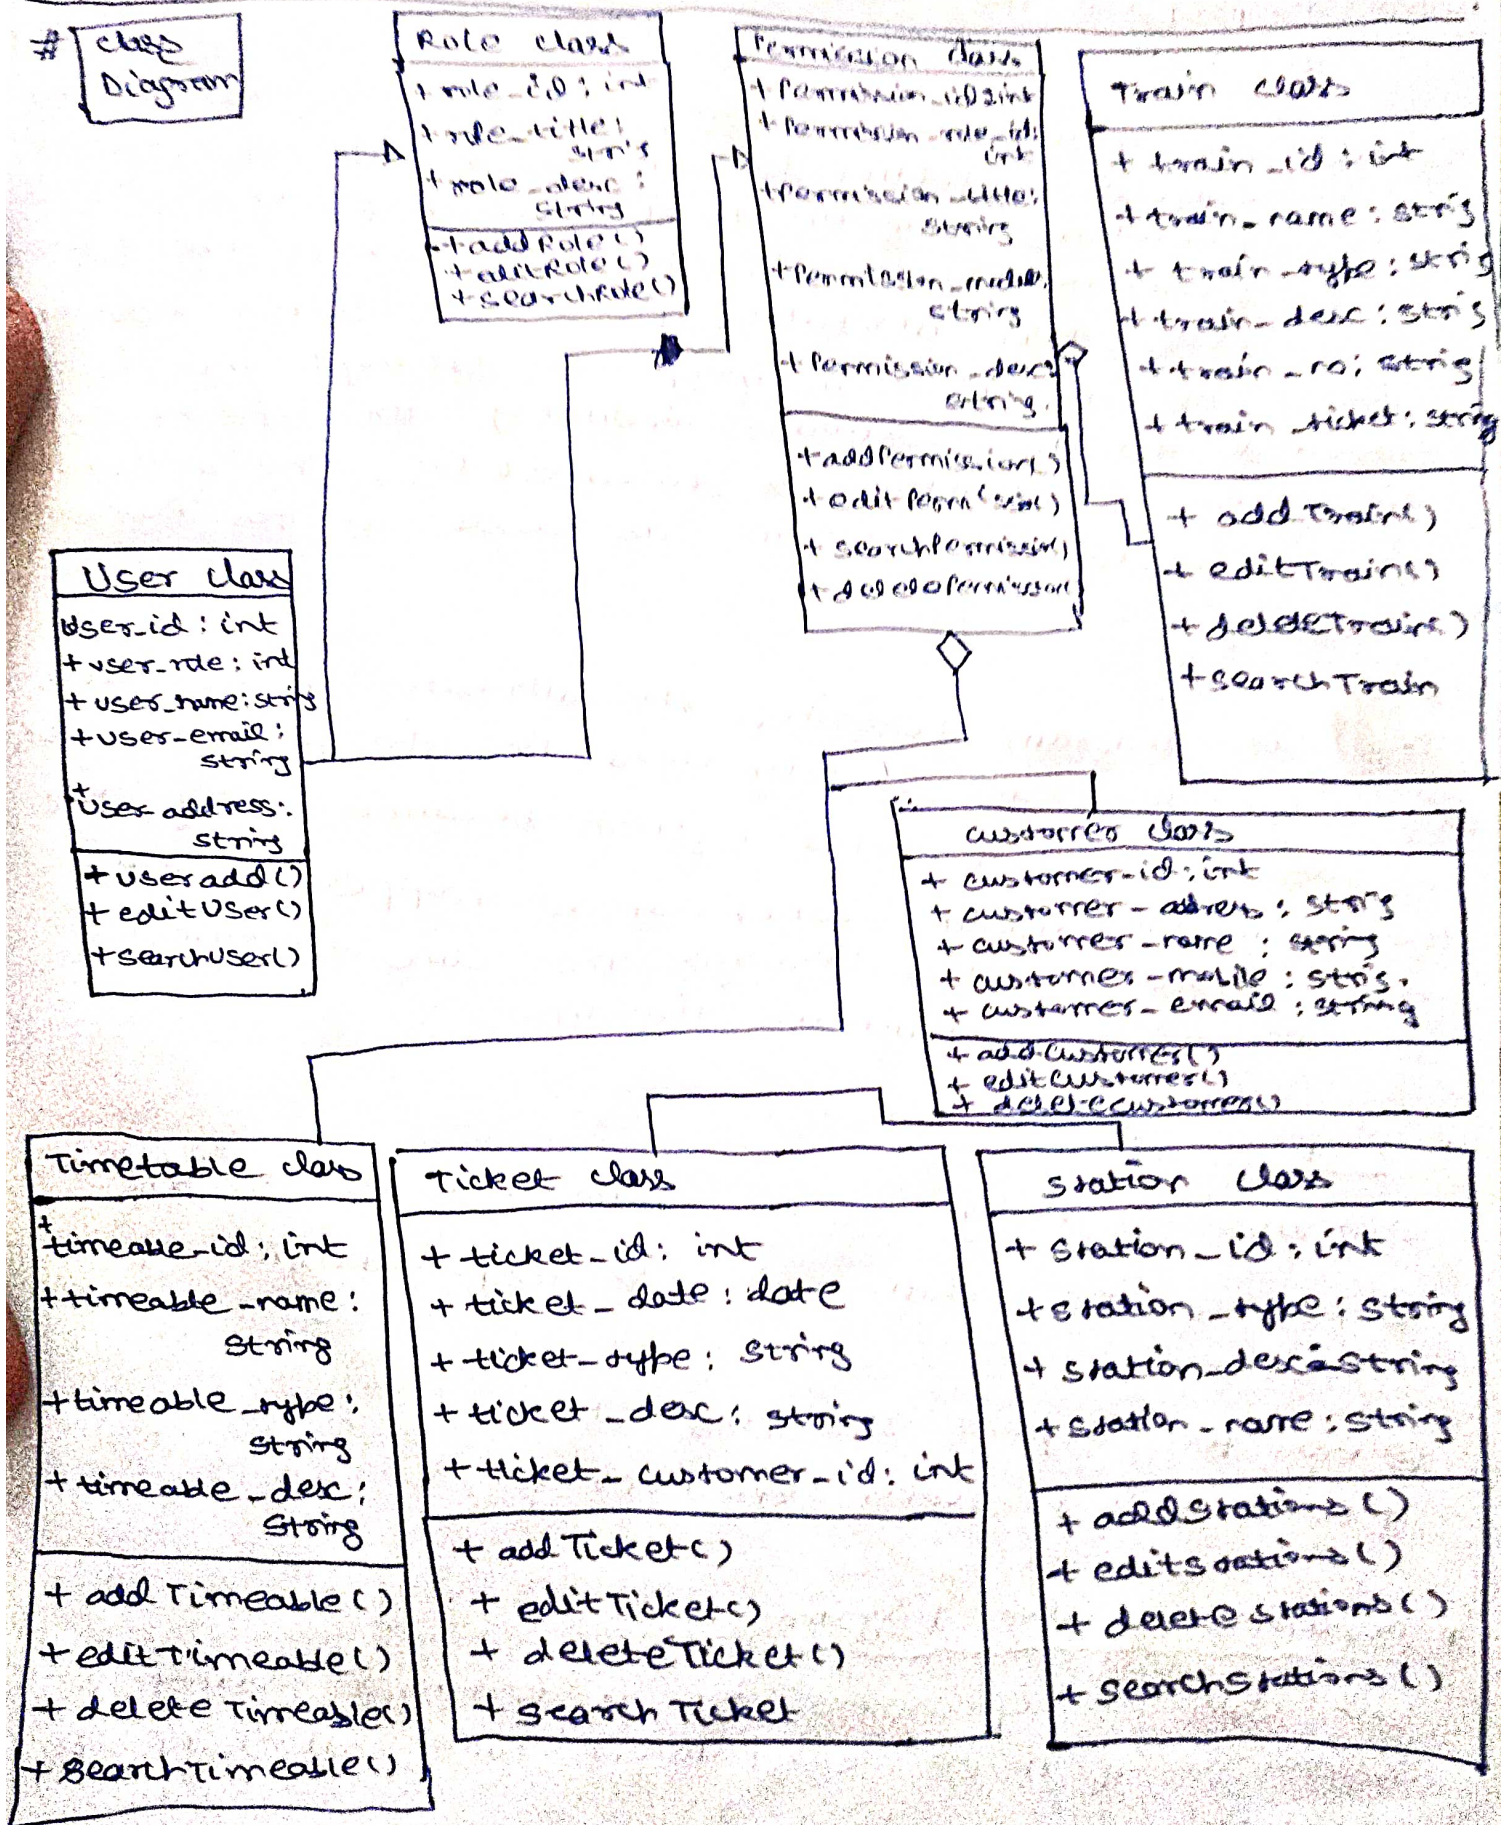 # Class
Diagram
Role class
+ role_id : int
+ role_title :
string
+ role_desc :
string
+ addRole()
+ editRole()
+ searchRole()
Permission class
+ Permission_id : int
+ Permission_role_id :
int
+ Permission_title :
string
+ Permission_module :
string
+ Permission_desc :
string.
+ addPermission()
+ editPermission()
+ searchPermission()
+ deletePermission
Train class
+ train_id : int
+ train_name : string
+ train_type : string
+ train_desc : string
+ train_no : string
+ train_ticket : string
+ addTrain()
+ editTrain()
+ deleteTrain()
+ searchTrain
User class
user_id : int
+ user_role : int
+ user_name : string
+ user_email :
string
+
user address :
string
+ useradd()
+ editUser()
+ searchUser()
customer class
+ customer_id : int
+ customer_address : string
+ customer_name : string
+ customer_mobile : string.
+ customer_email : string
+ addcustomer()
+ editcustomer()
+ deletecustomer()
Timetable class
+
timeable_id : int
+ timeable_name :
string
+ timeable_type :
string
+ timeable_desc :
string
+ add Timeable()
+ editTimeable()
+ delete Timeable()
+ searchTimeable()
Ticket class
+ ticket_id : int
+ ticket_date : date
+ ticket_type : string
+ ticket_desc : string
+ ticket_customer_id : int
+ addTicket()
+ editTicket()
+ deleteTicket()
+ searchTicket
Station class
+ station_id : int
+ station_type : string
+ station_desc : string
+ station_name : string
+ addstations()
+ editstations()
+ deletestations()
+ searchstations()